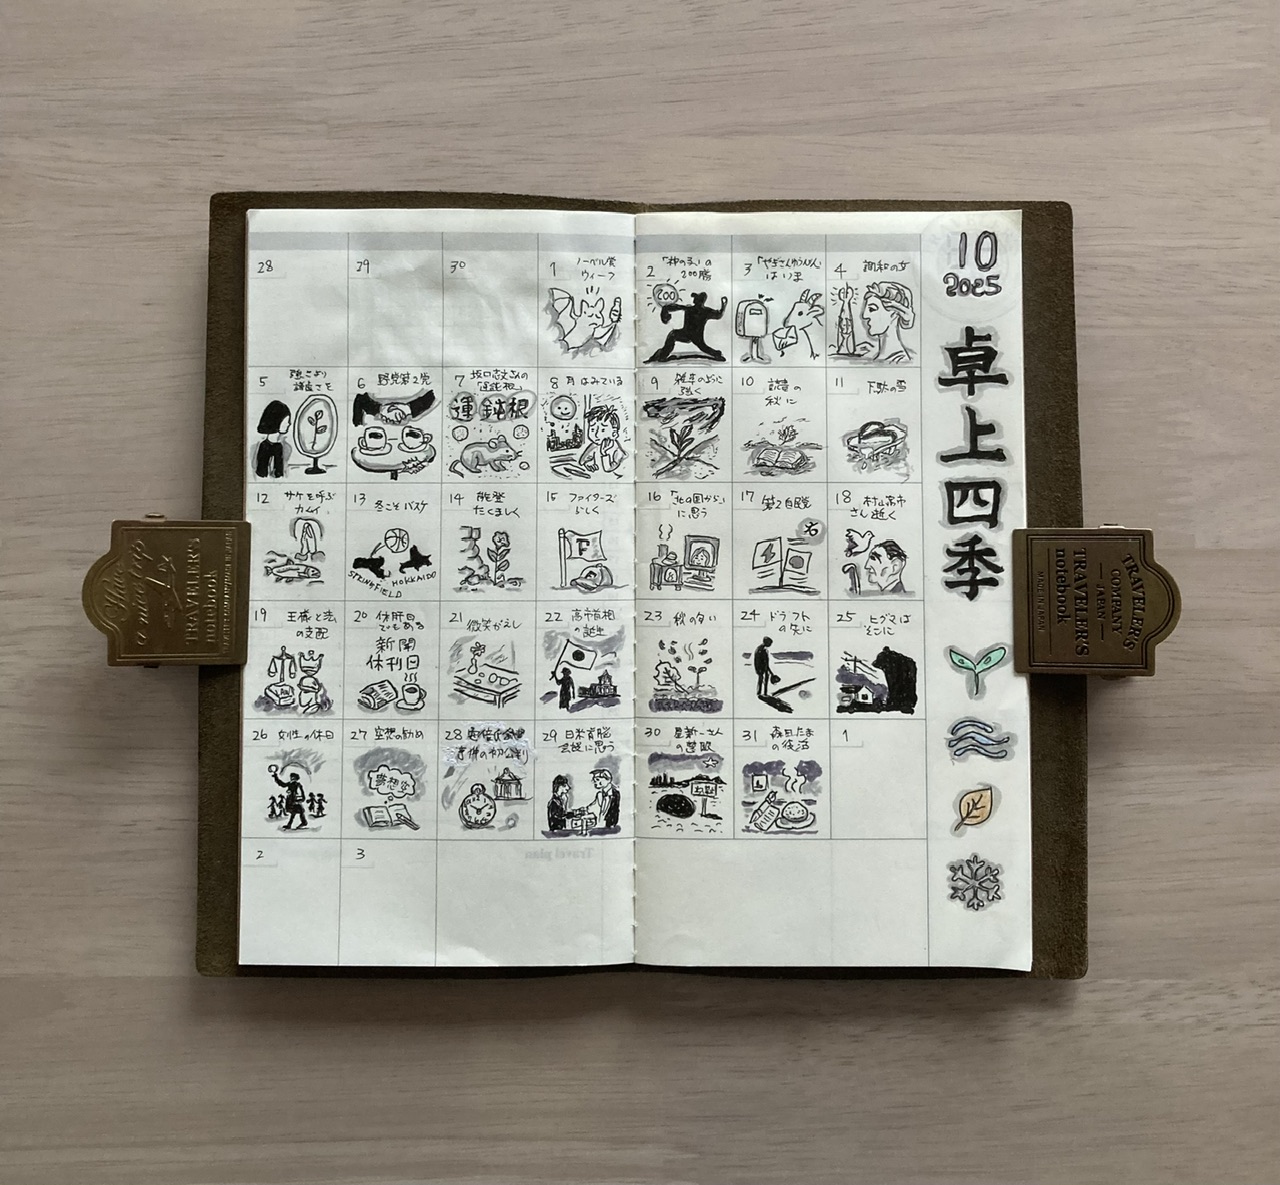 10
2025
卓上四季
28
29
30
1 ノーベル賞
ウィーク
2 「神の子」の
200勝
200
3 「やぎさんゆうびん」
はいま
4 調和の女
5 強さより
謙虚さを
6 野党第2党
7 坂口志文さんの
「運鈍根」
運 鈍根
8 月はみている
9 雑草のように
強く
10 読書の
秋に
11 下駄の雪
12 サケを呼ぶ
カムイ
13 冬こそバスケ
SPRINGFIELD
HOKKAIDO
14 能登
たくましく
15 ファイターズ
らしく
F
16 「北の国から」
に思う
17 第2自民党
右
18 村山富市
さん逝く
19 王様と法
の支配
LAW
20 休肝日
でもある
新聞
休刊日
21 微笑がえし
22 高市首相
の誕生
23 秋の匂い
24 ドラフト
の先に
25 ヒグマは
そこに
26 女性の休日
27 空想の勧め
28
29 日米首脳
会談に思う
30 星新一さん
の警句
31 森田たま
の復活
1
2
3
Travel plan
TRAVELER'S
notebook
TRAVELER'S
COMPANY
JAPAN
TRAVELER'S
notebook
MADE IN JAPAN